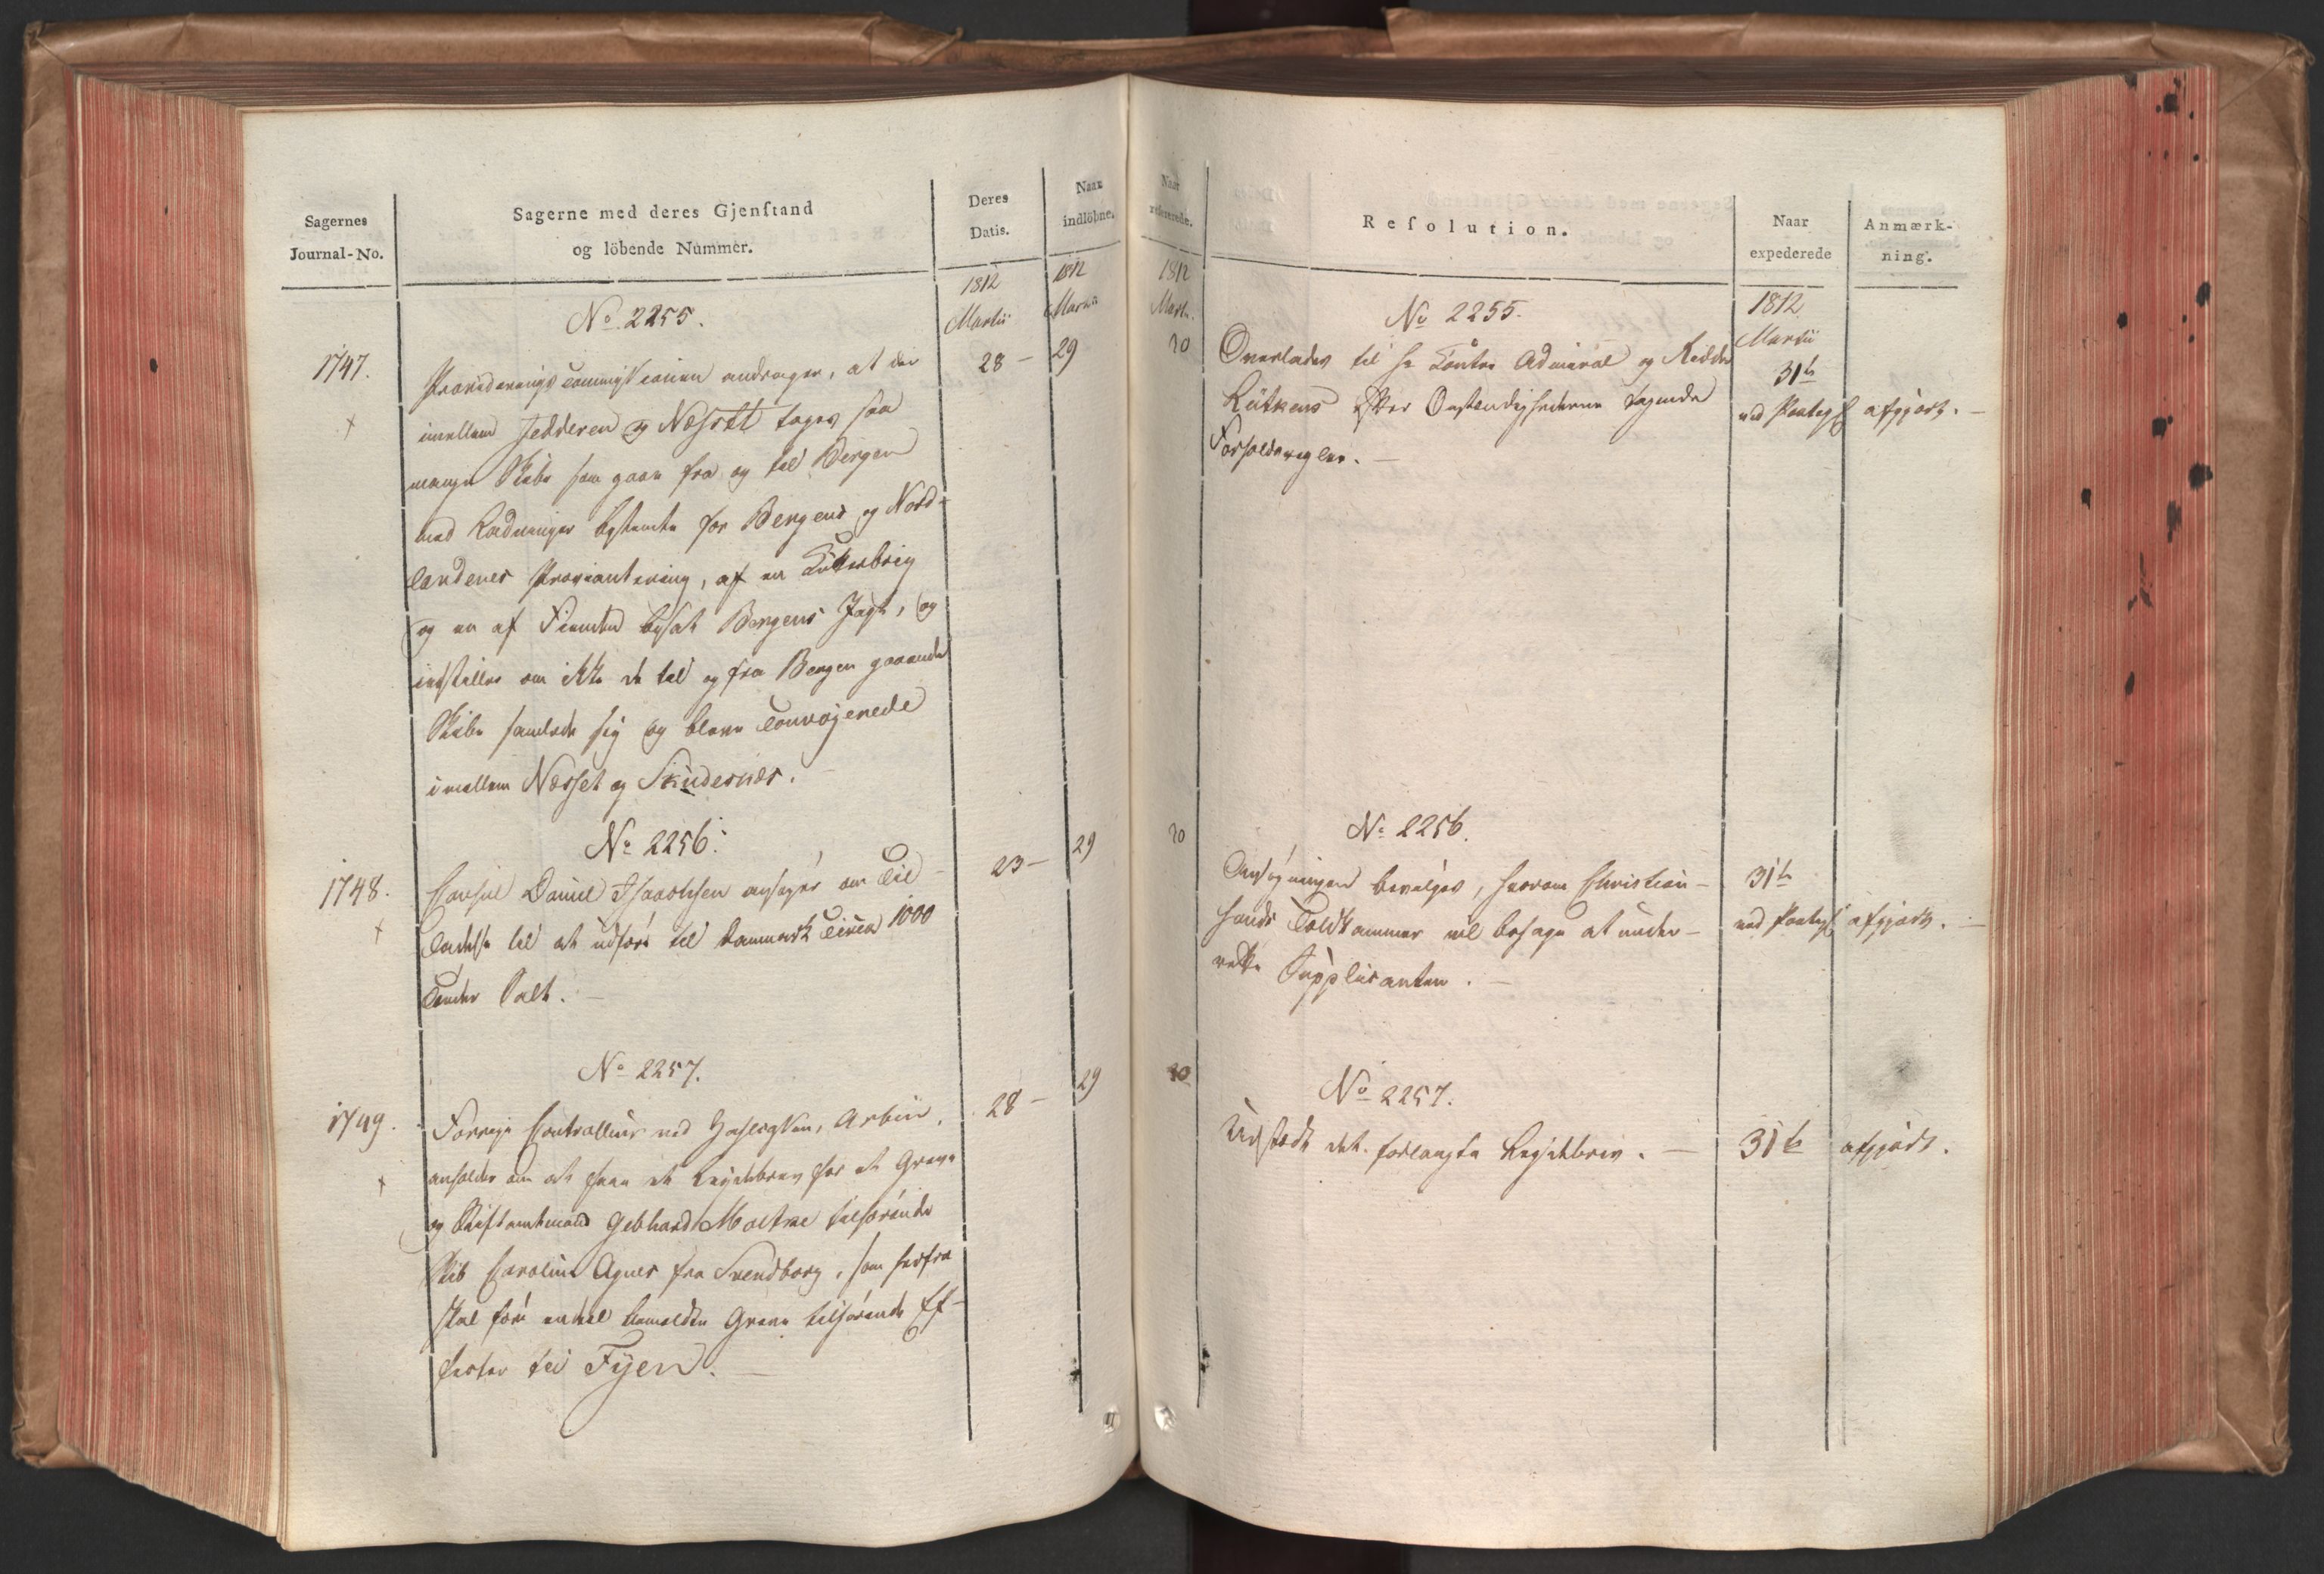 Sagernes
Journal-No.
Sagerne med deres Gjenſtand
og löbende Nummer.
Deres
Datis.
Naar
indlöbne.
1812
Martii
1812
Martii
No. 2255.
1747.
Provideringscommissionen andrager, at der
28 –
29
imellem Jedderen og Næsset tages saa
mange Skibe som gaae fra og til Bergen
med Ladninger bestemte for Bergens og Nord-
landenes Proviantering, af en Kutterbrig
og en af Fienden besat Bergens Jagt, og
indstiller om ikke de til og fra Bergen gaaende
Skibe samlede sig og bleve Convojerede
imellem Næsset og Skudesnæs.
No 2256.
1748.
Consul Daniel Isaachsen ansøger om Til-
23 –
29
ladelse til at udføre til Danmark Circa 1000
Tønder Salt. –
No 2257.
1749.
Forrige Controlleur ved Hasleykan, Arbin,
28 –
29
anholder om at faae et Leydebrev for et Greve
og Stiftamtmand Gebhard Moltke tilhørende
Skib Caroline Agnes fra Svendborg, som herfra
skal føre endeel bemeldte Greve tilhørende Ef-
fecter til Fyen. –
Naar
refererede.
Reſolution.
Naar
expederede
Anmærk-
ning.
1812
Martii
1812
Martii
No 2255.
30
Overlades til Hr Contre Admiral og Ridder
31te
Lütkens efter Omstendighederne tagende
ved Paategn
afgjort. –
Forholdsregler. –
No 2256.
30
Ansøgningen bevilges, hvorom Christian-
31te
sands Toldkammer vil behage at under-
ved Paategn
afgjort. –
rette Supplicanten. –
No 2257.
30
Udstedt det forlangte Leydebrev. –
31te
afgjort.